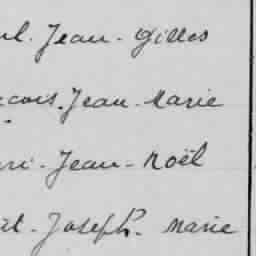 ul. Jean. Gilles
ncois. Jean. Marie
nri. Jean. Noël
at. Joseph. Marie